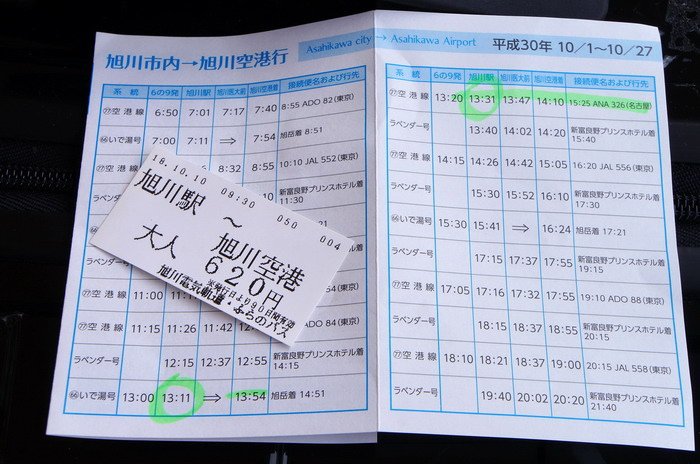 旭川市内→旭川空港行
Asahikawa city → Asahikawa Airport 平成30年 10/1〜10/27
系統 6の9発 旭川駅 旭川医大前 旭川空港着 接続便名および行先
㉗空港線 6:50 7:01 7:17 7:40 8:55 ADO 82(東京)
㊻いで湯号 7:00 7:11 ⇒ 7:54 旭岳着 8:51
8:32 8:55 10:10 JAL 552(東京)
新富良野プリンスホテル着 11:30
ラベンダー号
㉗空港線 11:00
㉗空港線 11:15 11:26 11:42 ADO 84(東京)
ラベンダー号 12:15 12:37 12:55 新富良野プリンスホテル着 14:15
いで湯号 13:00 13:11 ⇒ 13:54 旭岳着 14:51
18.10.10 09:30 050 004
旭川駅 〜 旭川空港
大人 620円
発行日より90日間有効
旭川電気軌道・ふらのバス
系統 6の9発 旭川駅 旭川医大前 旭川空港着 接続便名および行先
㉗空港線 13:20 13:31 13:47 14:10 15:25 ANA 326(名古屋)
ラベンダー号 13:40 14:02 14:20 新富良野プリンスホテル着 15:40
㉗空港線 14:15 14:26 14:42 15:05 16:20 JAL 556(東京)
ラベンダー号 15:30 15:52 16:10 新富良野プリンスホテル着 17:30
いで湯号 15:30 15:41 ⇒ 16:24 旭岳着 17:21
ラベンダー号 17:15 17:37 17:55 新富良野プリンスホテル着 19:15
㉗空港線 17:05 17:16 17:32 17:55 19:10 ADO 88(東京)
ラベンダー号 18:15 18:37 18:55 新富良野プリンスホテル着 20:15
㉗空港線 18:10 18:21 18:37 19:00 20:15 JAL 558(東京)
ラベンダー号 19:40 20:02 20:20 新富良野プリンスホテル着 21:40